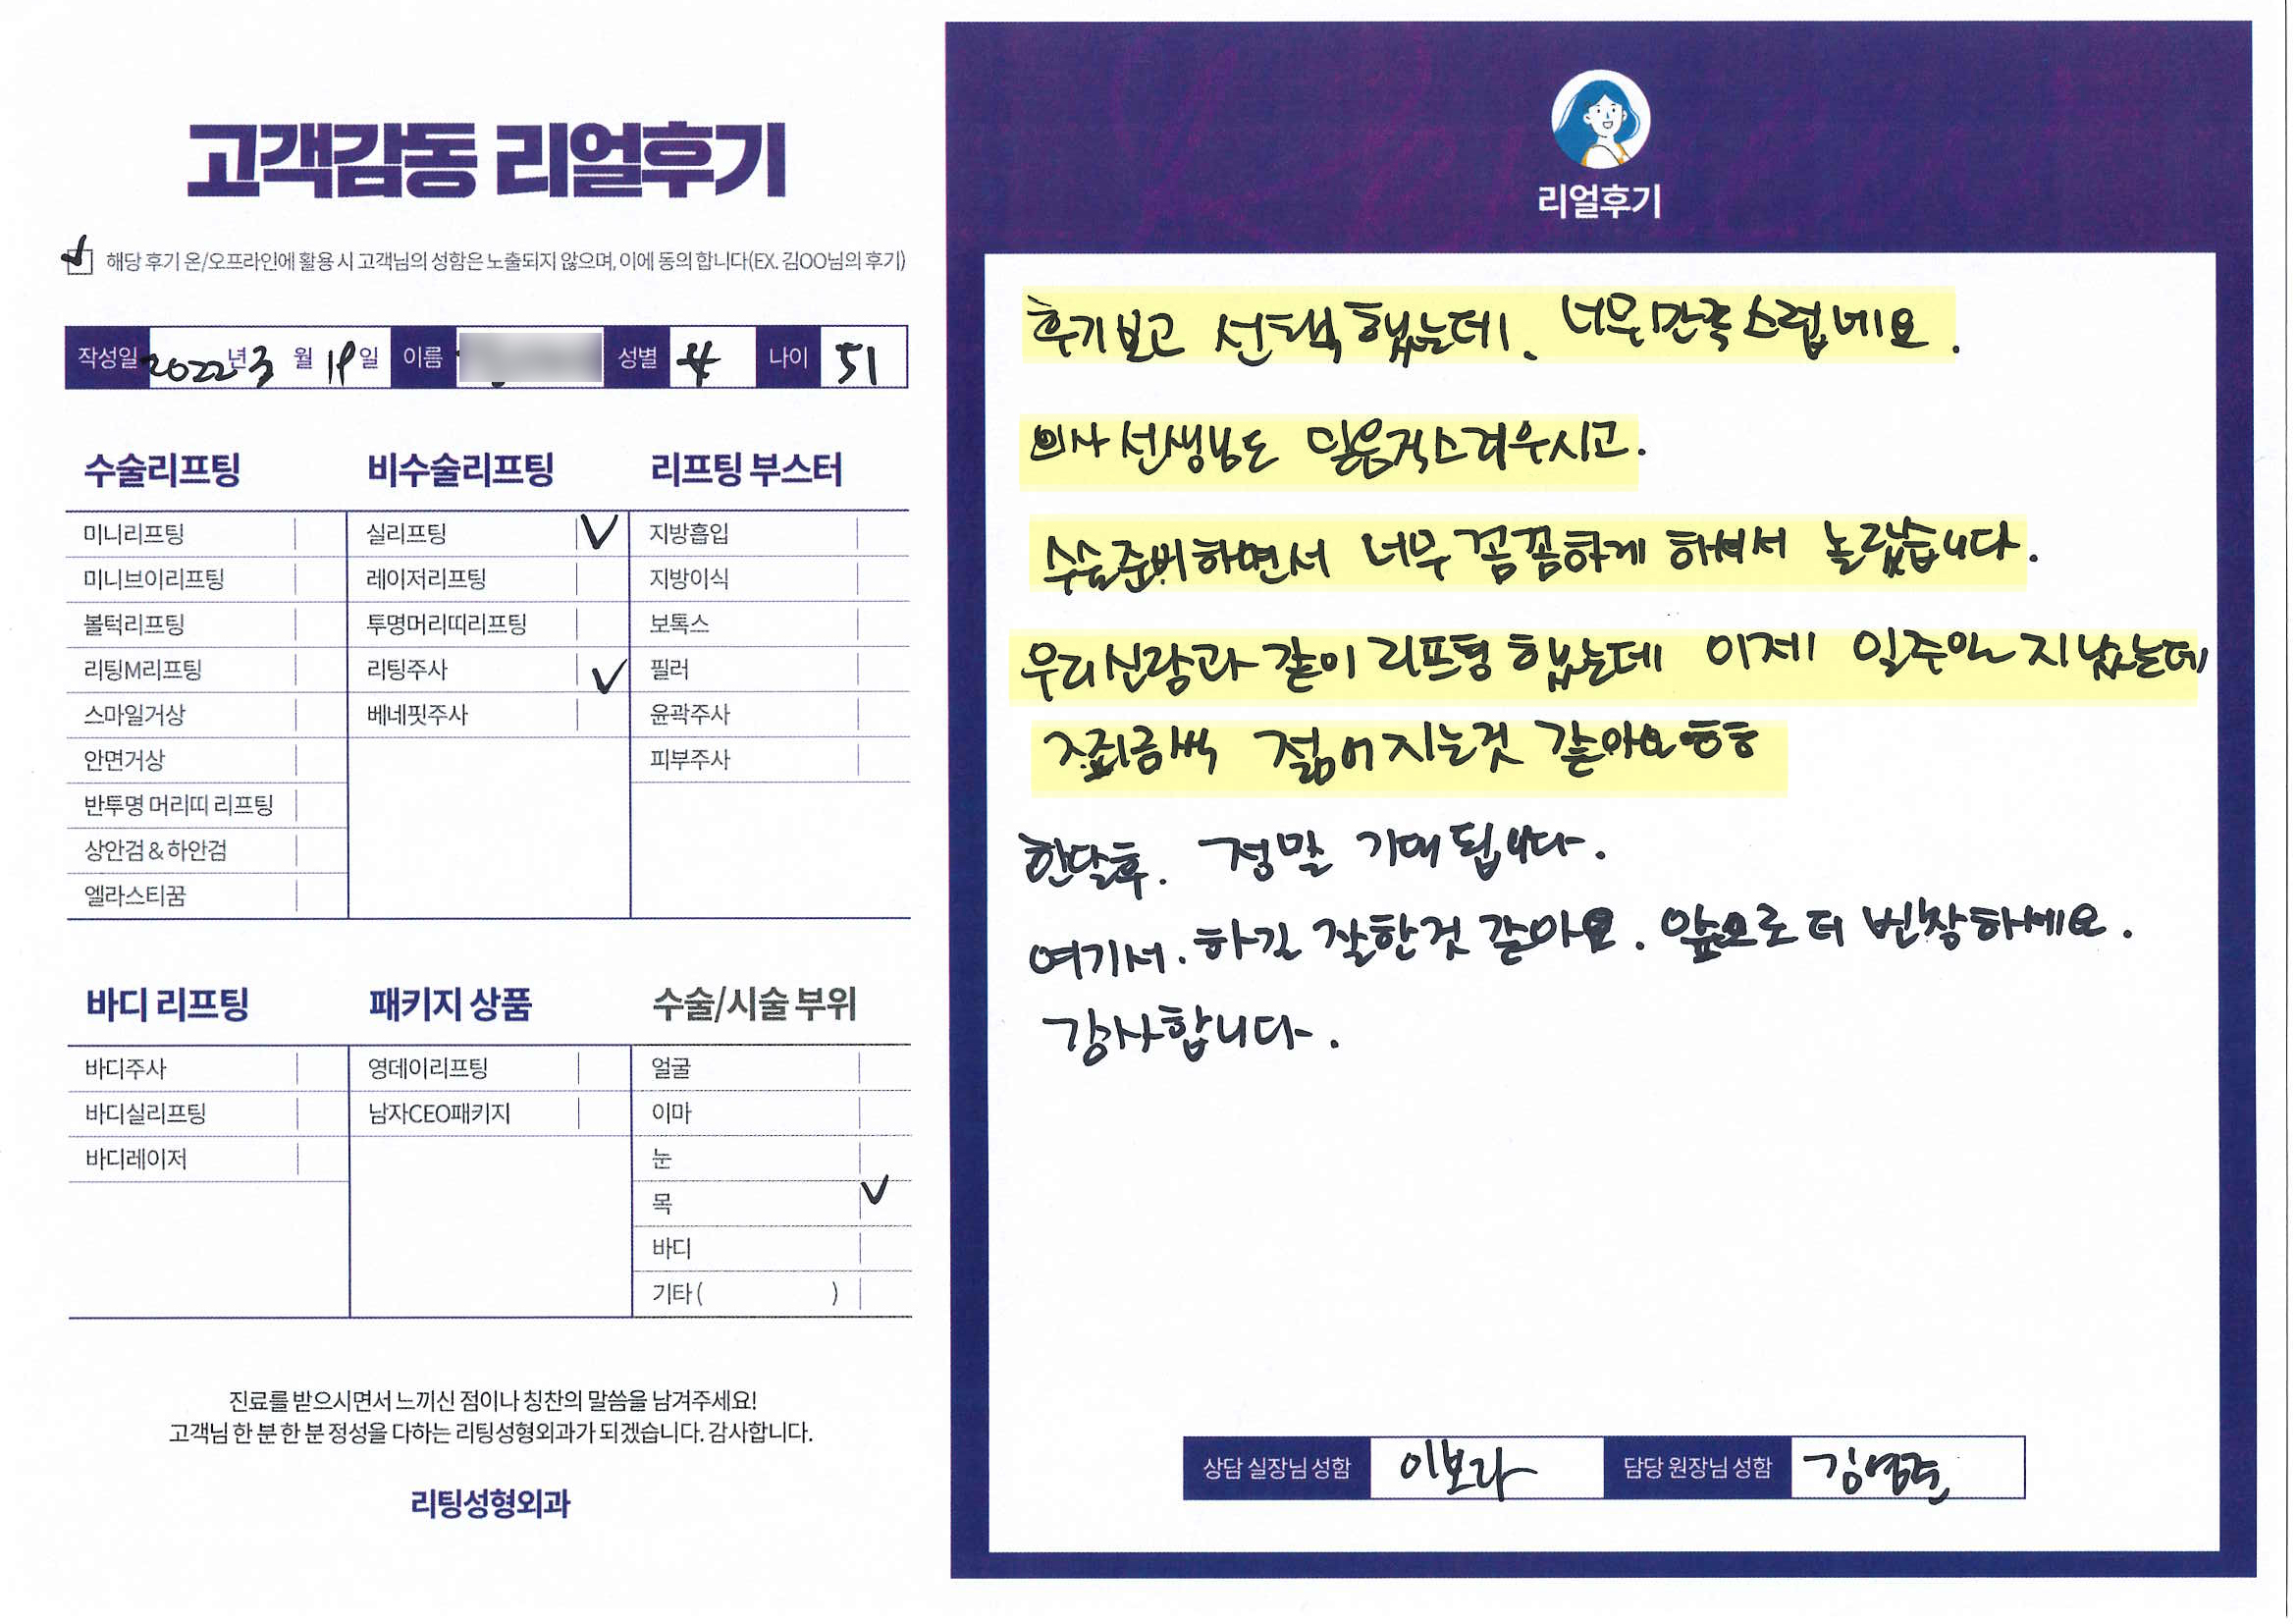 고객감동 리얼후기
해당 후기 온/오프라인에 활용 시 고객님의 성함은 노출되지 않으며, 이에 동의 합니다(EX. 김OO님의 후기)
작성일 2022년 3월 19일 이름 성별 나이 51
수술리프팅
미니리프팅
미니브이리프팅
볼턱리프팅
리팅M리프팅
스마일거상
안면거상
반투명 머리띠 리프팅
상안검&하안검
엘라스티꿈
비수술리프팅
실리프팅 ✓
레이저리프팅
투명머리띠리프팅
리팅주사 ✓
베네핏주사
리프팅 부스터
지방흡입
지방이식
보톡스
필러
윤곽주사
피부주사
바디 리프팅
바디주사
바디실리프팅
바디레이저
패키지 상품
영데이리프팅
남자CEO패키지
수술/시술 부위
얼굴
이마
눈
목 ✓
바디
기타 ( )
진료를 받으시면서 느끼신 점이나 칭찬의 말씀을 남겨주세요!
고객님 한 분 한 분 정성을 다하는 리팅성형외과가 되겠습니다. 감사합니다.
리팅성형외과
리얼후기
후기보고 선택했는데. 너무만족스럽네요.
의사선생님도 믿음직스러우시고.
수술준비하면서 너무꼼꼼하게 하셔서 놀랐습니다.
우리신랑과 같이 리프팅 했는데 이제 일주일 지났는데
조금씩 젊어지는것 같아요
한달후. 정말 기대됩니다.
여기서. 하길 잘한것 같아요. 앞으로 더 번창하세요.
감사합니다.
상담 실장님 성함 이보라 담당 원장님 성함